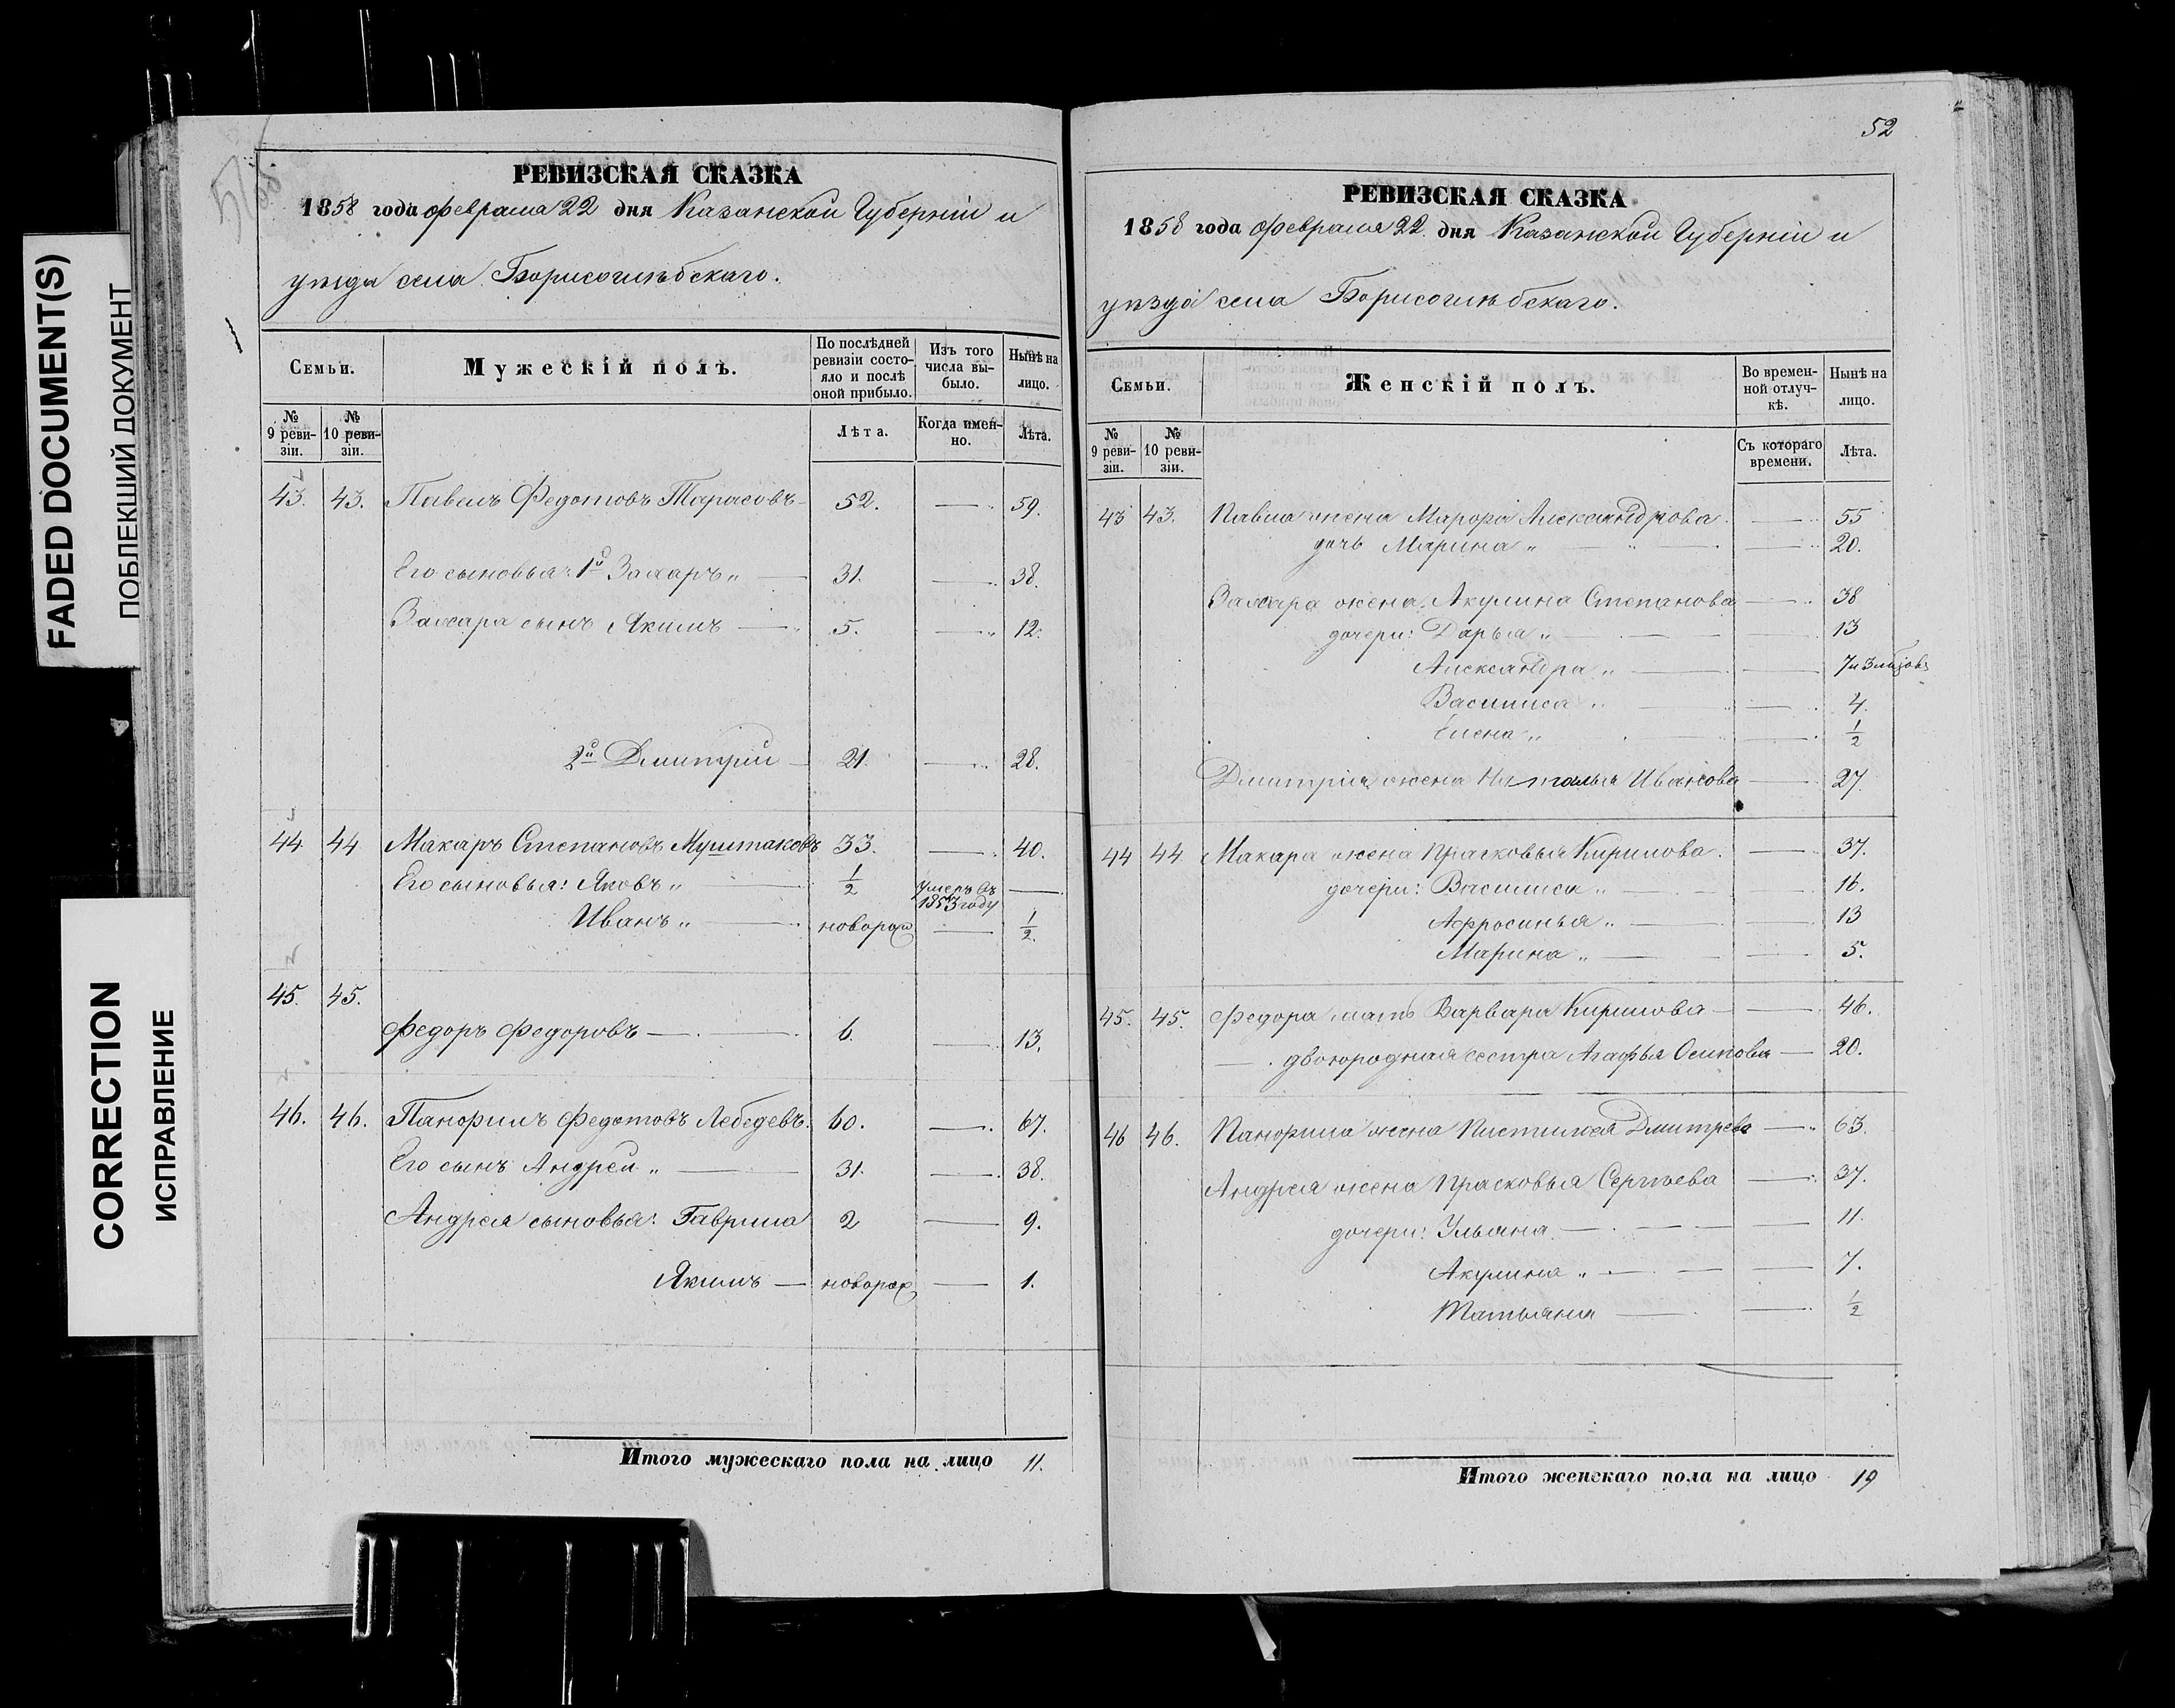 FADED DOCUMENT(S)
ПОБЛЕКШИЙ ДОКУМЕНТ
CORRECTION
ИСПРАВЛЕНИЕ
РЕВИЗСКАЯ СКАЗКА
1858 года февраля 22 дня Казанской Губернiи и
уѣзда села Борисоглѣбскаго.
Семьи. Мужескiй полъ. По послѣдней ревизiи состояло и послѣ оной прибыло. Изъ того числа выбыло. Нынѣ на лицо.
№ 9 ревизiи. № 10 ревизiи. Лѣта. Когда именно. Лѣта.
43. 43. Павелъ Федотовъ Тарасовъ 52. — 59.
Его сыновья: 1й Захаръ „ — 31. — 38.
Захара сынъ Якимъ — 5. — 12.
2й Дмитрiй — 21. — 28.
44 44 Макаръ Степановъ Муштаковъ 33. — 40.
Его сыновья: Яковъ „ — 1/2 умеръ въ 1853 году —
Иванъ „ — новорож — 1/2.
45. 45.
Федоръ Федоровъ — 6. — 13.
46. 46. Панфилъ Федотовъ Лебедевъ. 60. — 67.
Его сынъ Андрей „ — 31. — 38.
Андрея сыновья: Гаврила 2 — 9.
Якимъ — новорож — 1.
Итого мужескаго пола на лицо 11.
52
РЕВИЗСКАЯ СКАЗКА
1858 года февраля 22 дня Казанской Губернiи и
уѣзда села Борисоглѣбскаго.
Семьи. Женскiй полъ. Во временной отлучкѣ. Нынѣ на лицо.
№ 9 ревизiи. № 10 ревизiи. Съ котораго времени. Лѣта.
43 43. Павла жена Марфа Александрова. — 55
дочь Марина „ — 20.
Захара жена Акулина Степанова — 38
дочери: Дарья „ — 13
Александра „ — 7 и 3 мѣсяцовъ
Василиса „ — 4.
Елена „ — 1/2
Дмитрiя жена Наталья Иванова — 27
44 44 Макара жена Прасковья Кирилова. — 37.
дочери: Василиса „ — 16.
Афросинья „ — 13
Марина „ — 5.
45. 45. Федора мать Варвара Кирилова — 46.
— . двоюродная сестра Агафья Осипова — 20.
46 46. Панфила жена Пистимея Дмитрева — 63.
Андрея жена Прасковья Сергѣева — 37.
дочери: Ульяна — 11.
Акулина „ — 7.
Татьяна — 1/2
Итого женскаго пола на лицо 19